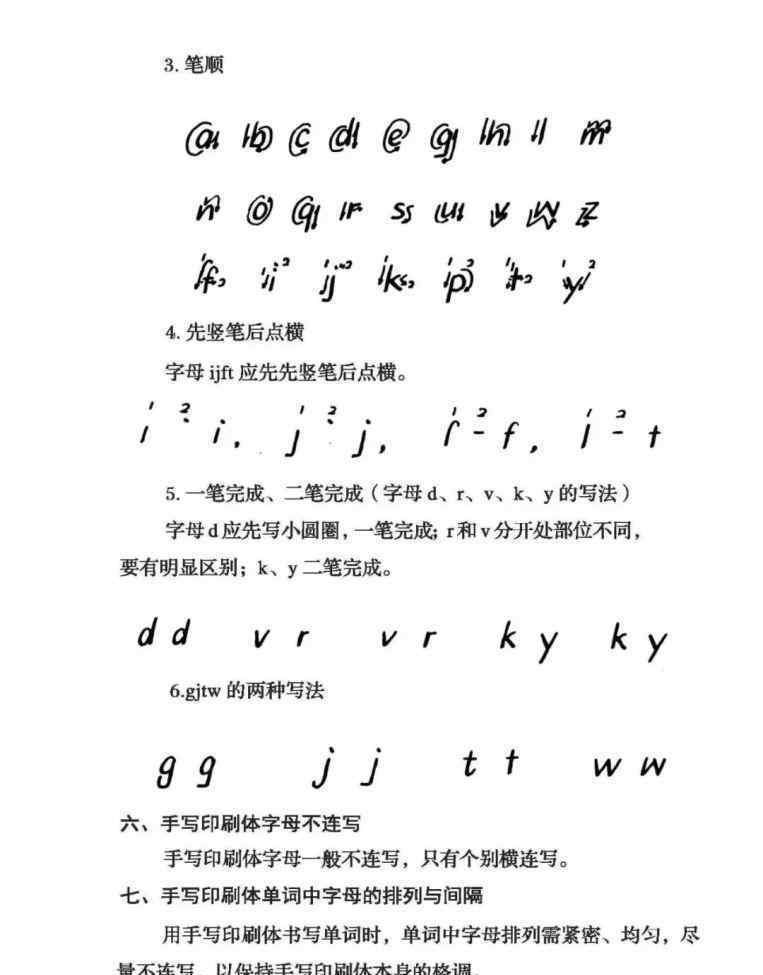 3. 笔顺
a b c d e g h l m
n o q r s u v w z
1 f 2 1 i 2 1 j 2 1 k 2 1 p 2 1 t 2 1 y 2
4. 先竖笔后点横
字母 ijft 应先先竖笔后点横。
1 2 i, 1 2 j, 1 2 f, 1 2 t
5. 一笔完成、二笔完成（字母 d、r、v、k、y 的写法）
字母 d 应先写小圆圈，一笔完成；r 和 v 分开处部位不同，
要有明显区别；k、y 二笔完成。
d d v r v r k y k y
6.gjtw 的两种写法
g g j j t t w w
六、手写印刷体字母不连写
手写印刷体字母一般不连写，只有个别横连写。
七、手写印刷体单词中字母的排列与间隔
用手写印刷体书写单词时，单词中字母排列需紧密、均匀，尽
量不连写，以保持手写印刷体本身的格调。